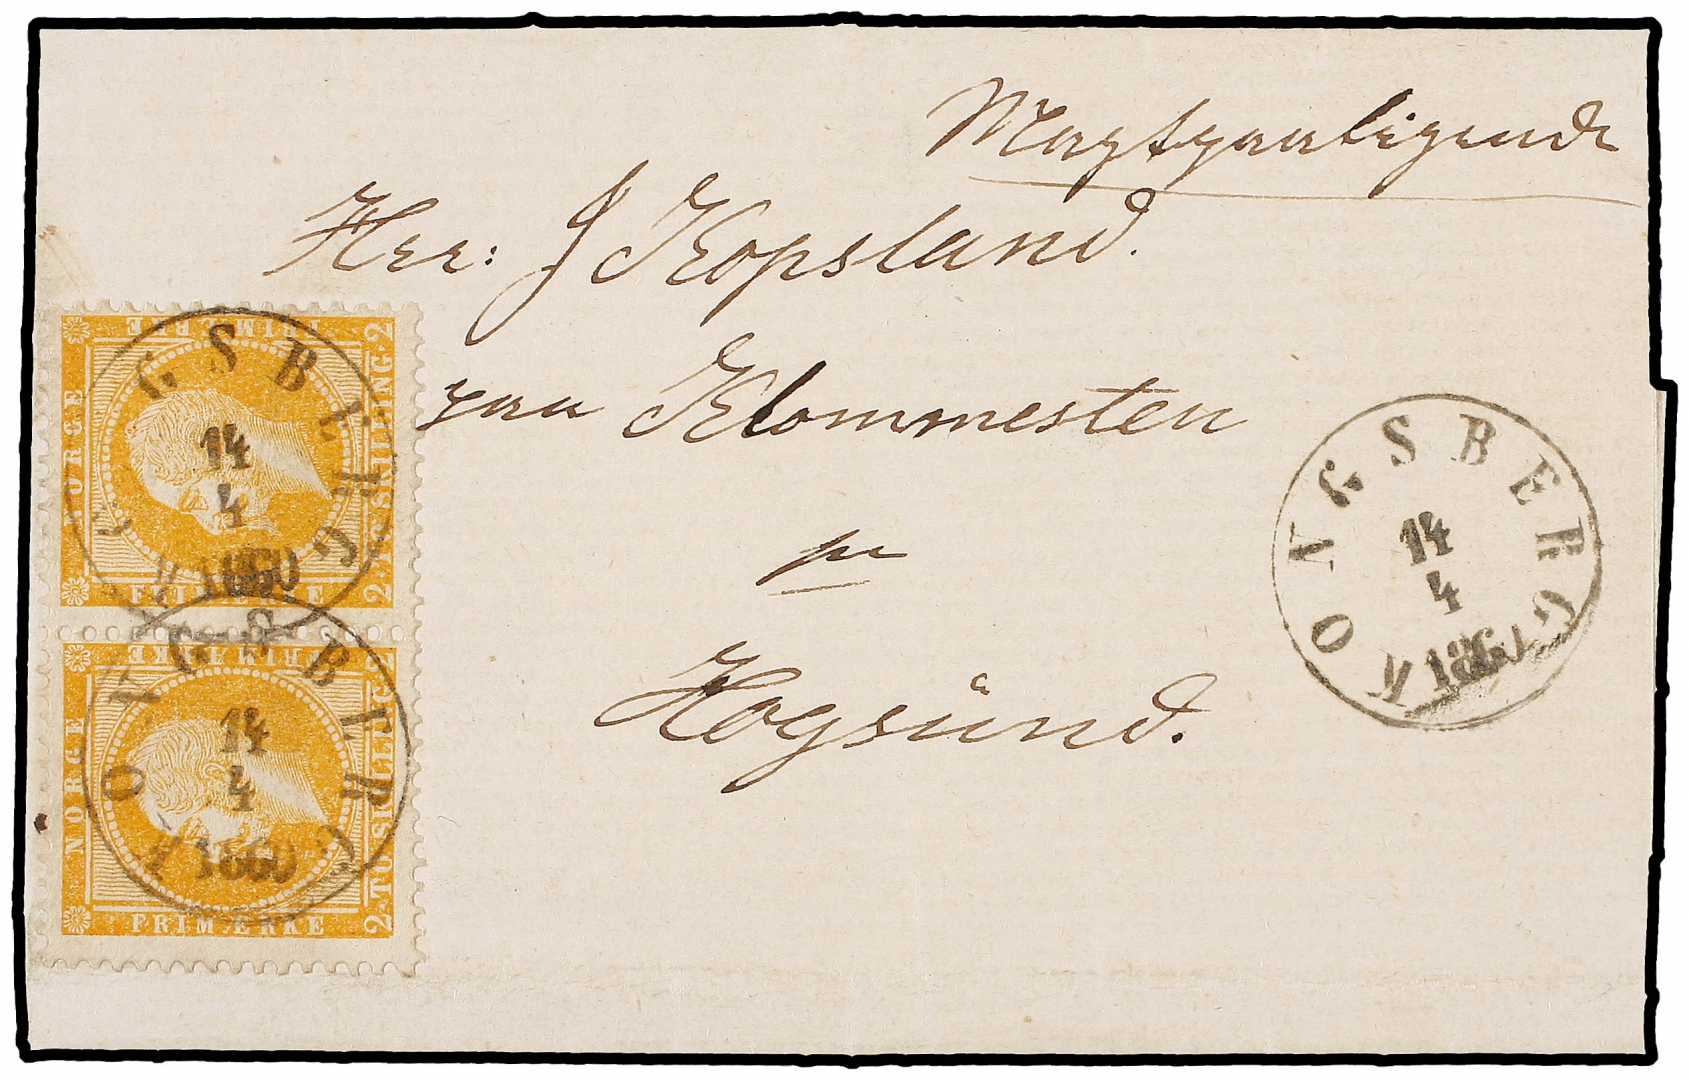 Magtpaaligende
Herr: J Kopsland.
paa Klommesten
pr
Hogsund.
KONGSBERG
14
4
1860
NORGE
FRIMÆRKE
2 TO SKILLING 2
FRIMÆRKE
KONGSBERG
14
4
1860
NORGE
FRIMÆRKE
2 TO SKILLING 2
FRIMÆRKE
KONGSBERG
14
4
1860